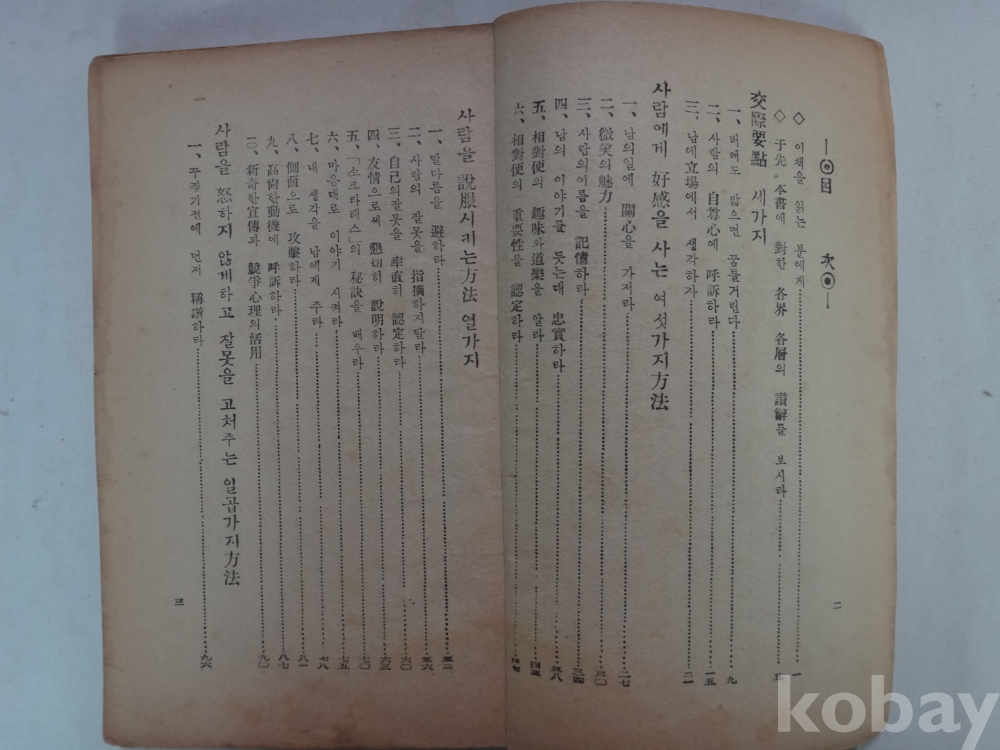 ─◉目 次◉─
◇ 이책을 읽는 분에게 一
◇ 于先 本書에 對한 各界 各層의 讚辭를 보시라
交際要點 세가지
一、버레도 밟으면 꿈틀거린다 九
二、사람의 自尊心에 呼訴하라 一五
三、남에 立場에서 생각하자 二一
사람에게 好感을 사는 여섯가지方法
一、남의일에 關心을 가저라 二七
二、微笑의魅力 三〇
三、사람의이름을 記憶하라 三四
四、남의 이야기를 듯는대 忠實하라 三八
五、相對便의 趣味와道樂을 알라 四三
六、相對便의 重要性을 認定하라 四七
二
사람을 說服시키는方法 열가지
一、말다툼을 避하라 五二
二、사람의 잘못을 指摘하지말라 五六
三、自己의잘못을 率直히 認定하라 六〇
四、友情으로써 懇切히 說明하라 六三
五、「소크라테스」의 秘訣을 배우라 七〇
六、마음대로 이야기 시켜라 七五
七、내 생각을 남에게 주라 七八
八、側面으로 攻擊하라 八一
九、高尙한動機에 呼訴하라 八七
一〇、新奇한宣傳과 競爭心理의活用 九〇
사람을 怒하지 않게하고 잘못을 고처주는 일곱가지方法
一、꾸짖기전에 먼저 稱讚하라 九六
三
kobay